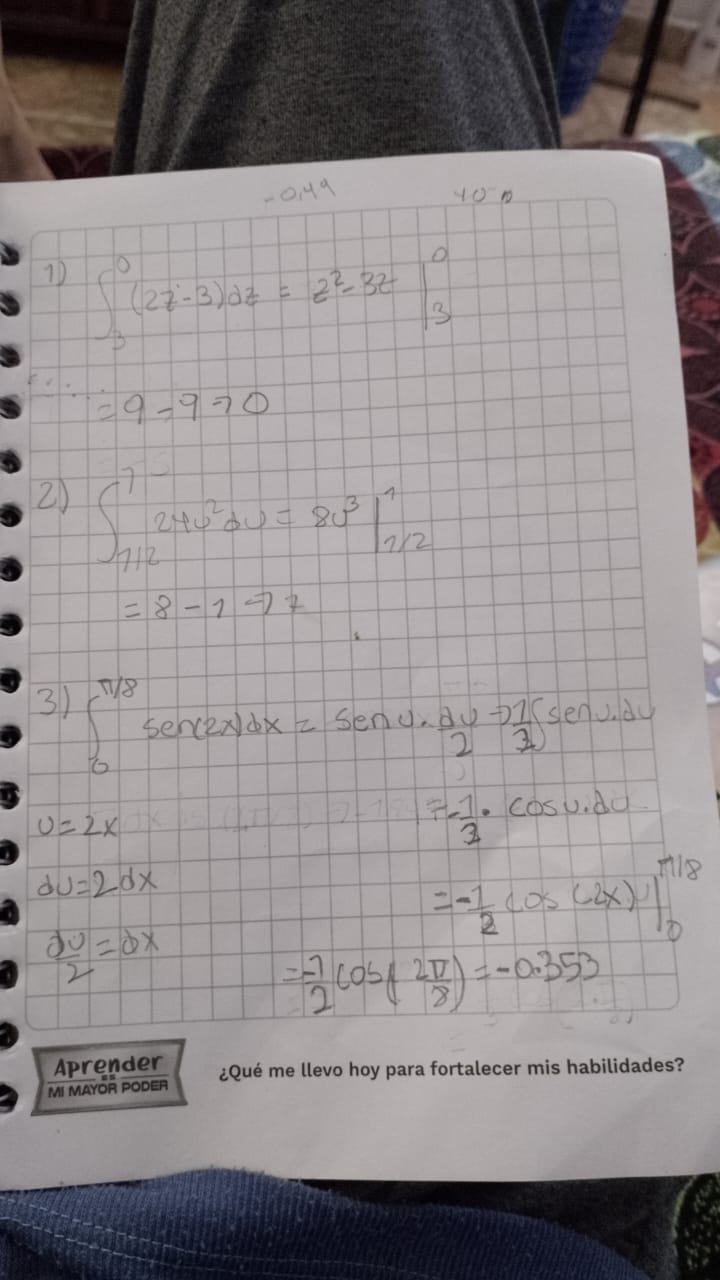 -0,49
1) ∫₃⁰ (2z-3)dz = z²-3z |₃⁰
= 9-9 → 0
2) ∫₁/₂¹ 24u²du = 8u³ |₁/₂¹
= 8-1 → 7
3) ∫₀^π/8 sen(2x)dx = senu.du/2 → 1/2 ∫senu.du
u=2x
= -1/2 . cosu.du
du=2dx
= -1/2 cos(2x) |₀^π/8
du/2 = dx
= -1/2 cos(2π/8) = -0.353
Aprender
ES
MI MAYOR PODER
¿Qué me llevo hoy para fortalecer mis habilidades?